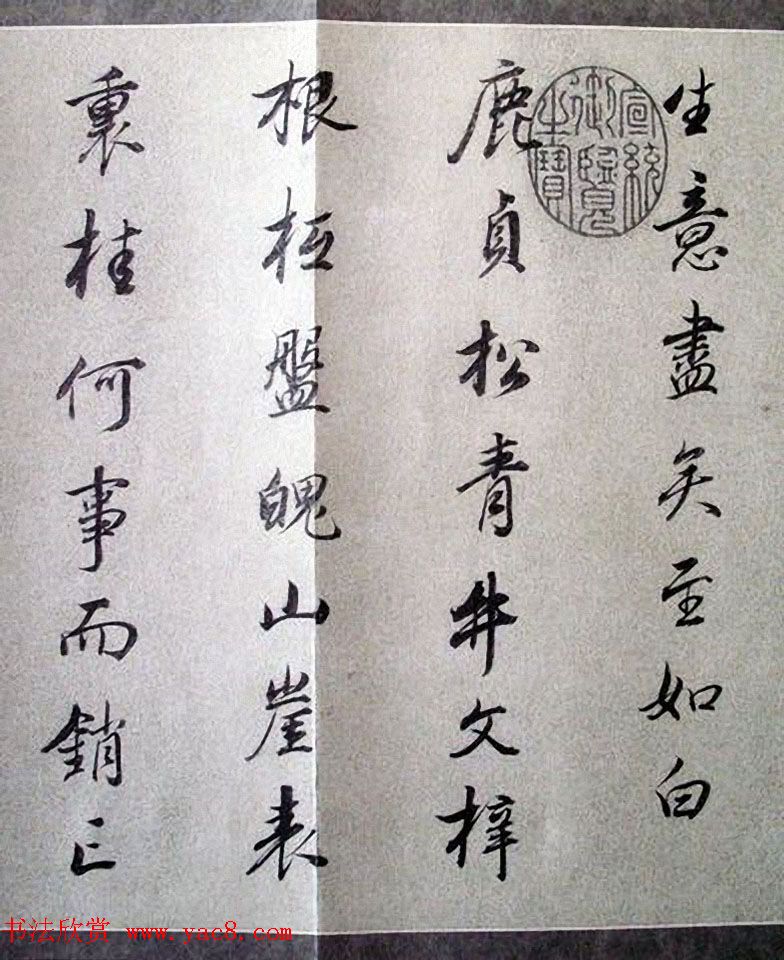 生意盡矣至如白
鹿貞松青牛文梓
根柢盤魄山崖表
裏桂何事而銷亡
宣統御覽之寶
书法欣赏 www.yac8.com